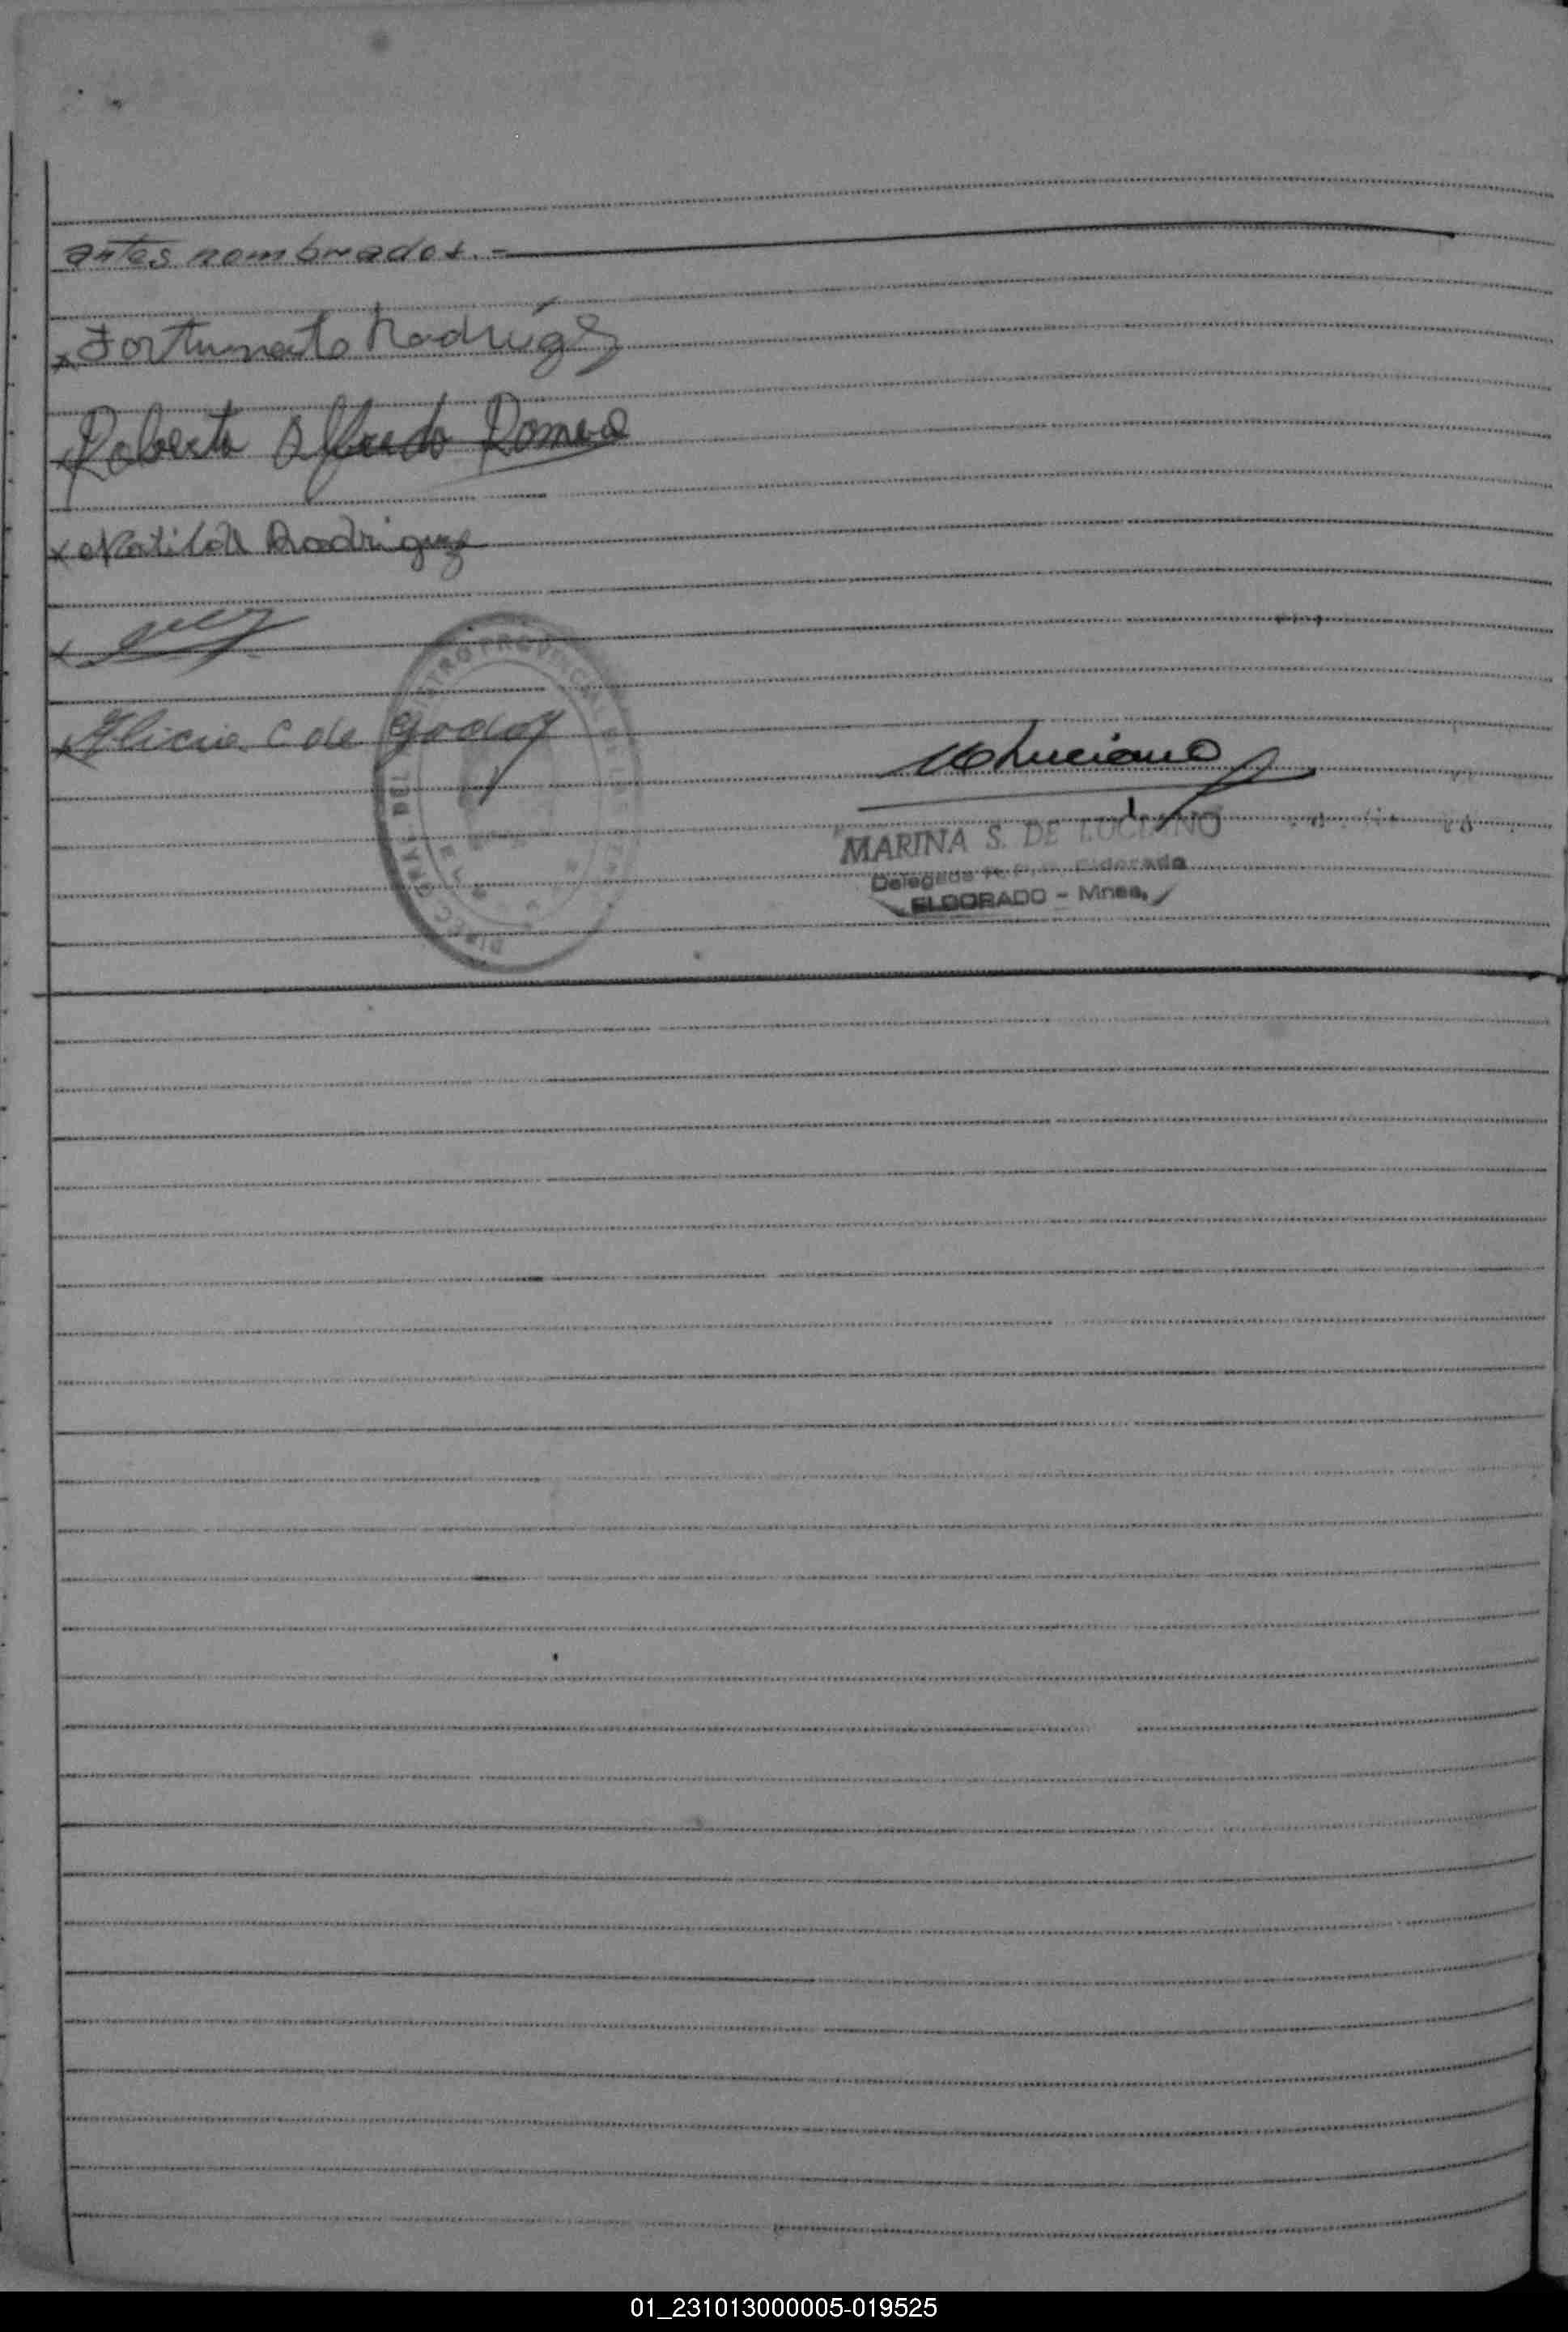 antes nombrados.-
x Fortunato Rodríguez
x Roberto Alfredo Romero
x Matilde Rodriguez
x
x Alicia C de Godoy
MLuciano
MARINA S. DE LUCIANO
Delegada R. P. P. Eldorado
ELDORADO - Mnes.
01_231013000005-019525